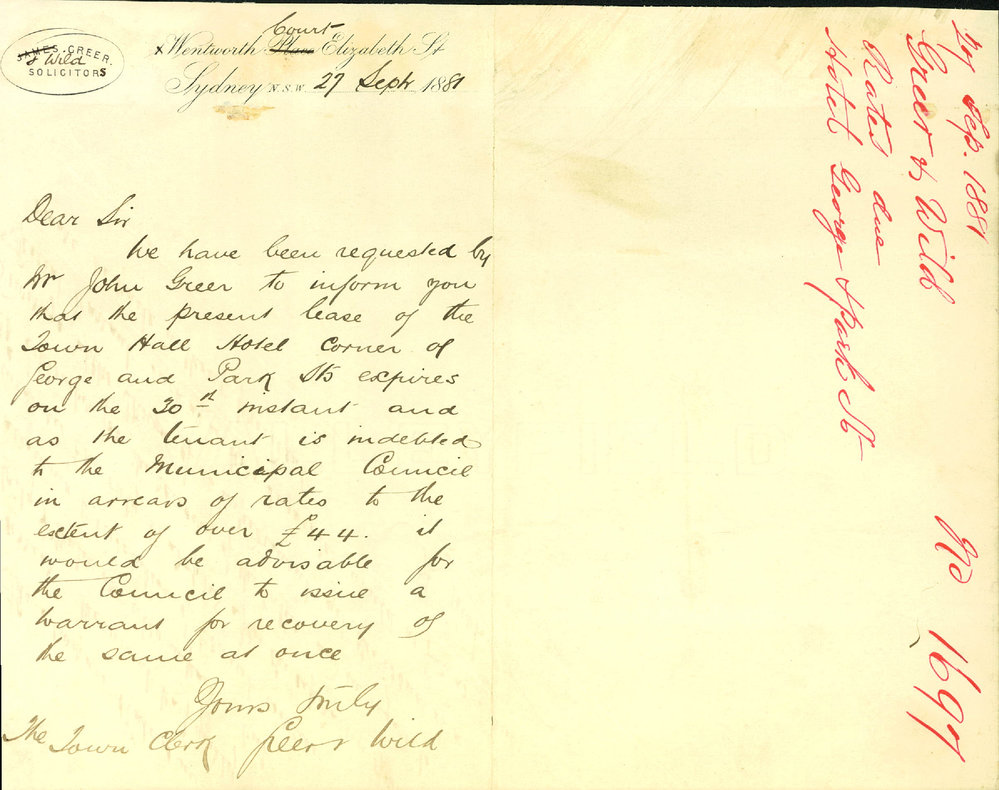 JAMES GREER.
& Wild
SOLICITORS
Court
Wentworth Place Elizabeth St
Sydney N.S.W. 27 Sept 1881
Dear Sir
We have been requested by
Mr John Greer to inform you
that the present lease of the
Town Hall Hotel corner of
George and Park Sts expires
on the 30st instant and
as the tenant is indebted
to the Municipal Council
in arrears of rates to the
extent of over £44. it
would be advisable for
the Council to issue a
warrant for recovery of
the same at once
Yours truly
The Town Clerk Greer & Wild
Sep. 1881
Greer & Wild
Rates due
Hotel George & Park St
No 1697